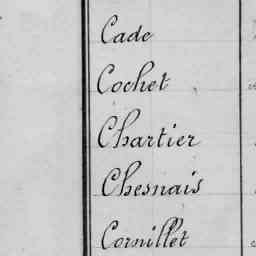 Cade
Cochet
Chartier
Chesnais
Cornillet